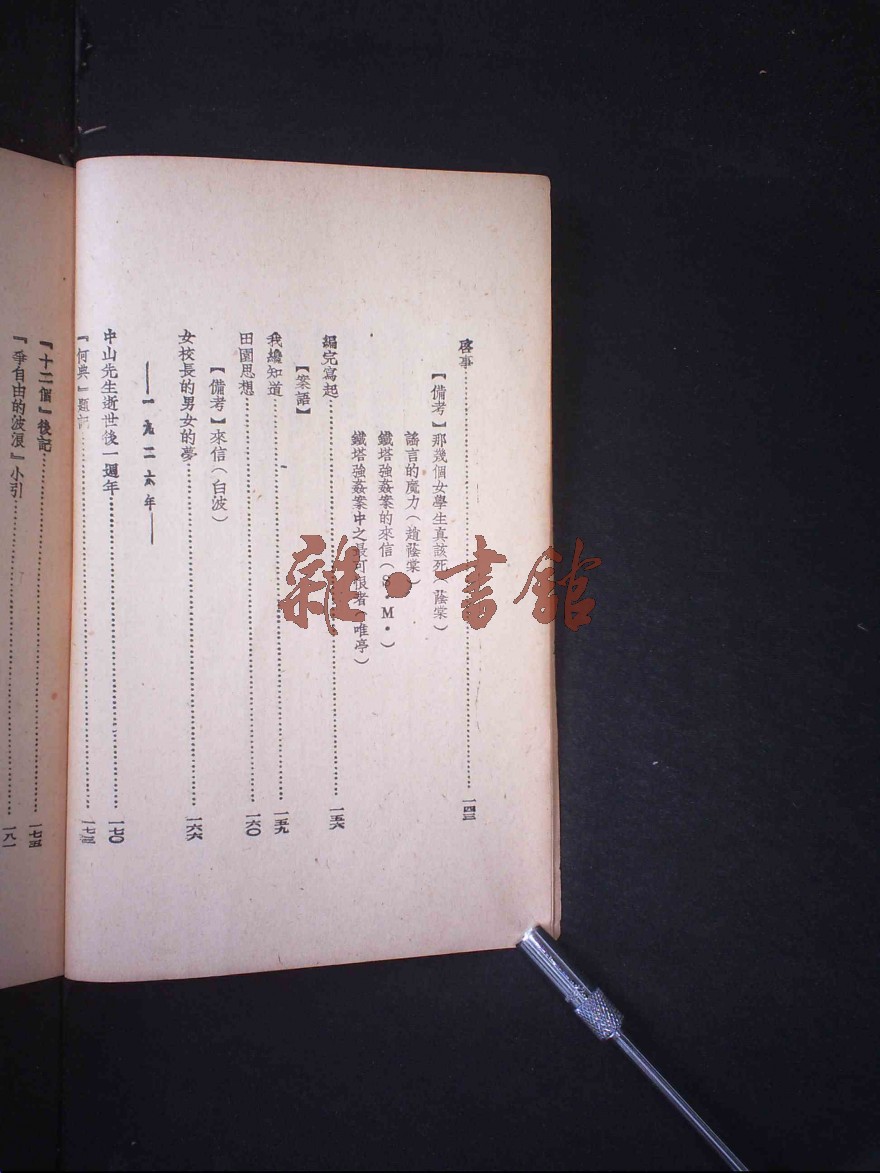 啓事……一四三
【備考】那幾個女學生真該死(蔭棠)
謠言的魔力(趙蔭棠)
鐵塔強姦案的來信(S·M·)
鐵塔強姦案中之最可恨者(唯亭)
編完寫起……一五六
【案語】
我纔知道……一五九
田園思想……一六〇
【備考】來信(白波)
女校長的男女的夢……一六六
——一九二六年——
中山先生逝世後一週年……一七〇
『何典』題記……一七三
『十二個』後記……一七五
『爭自由的波浪』小引……一八一
雜·書館